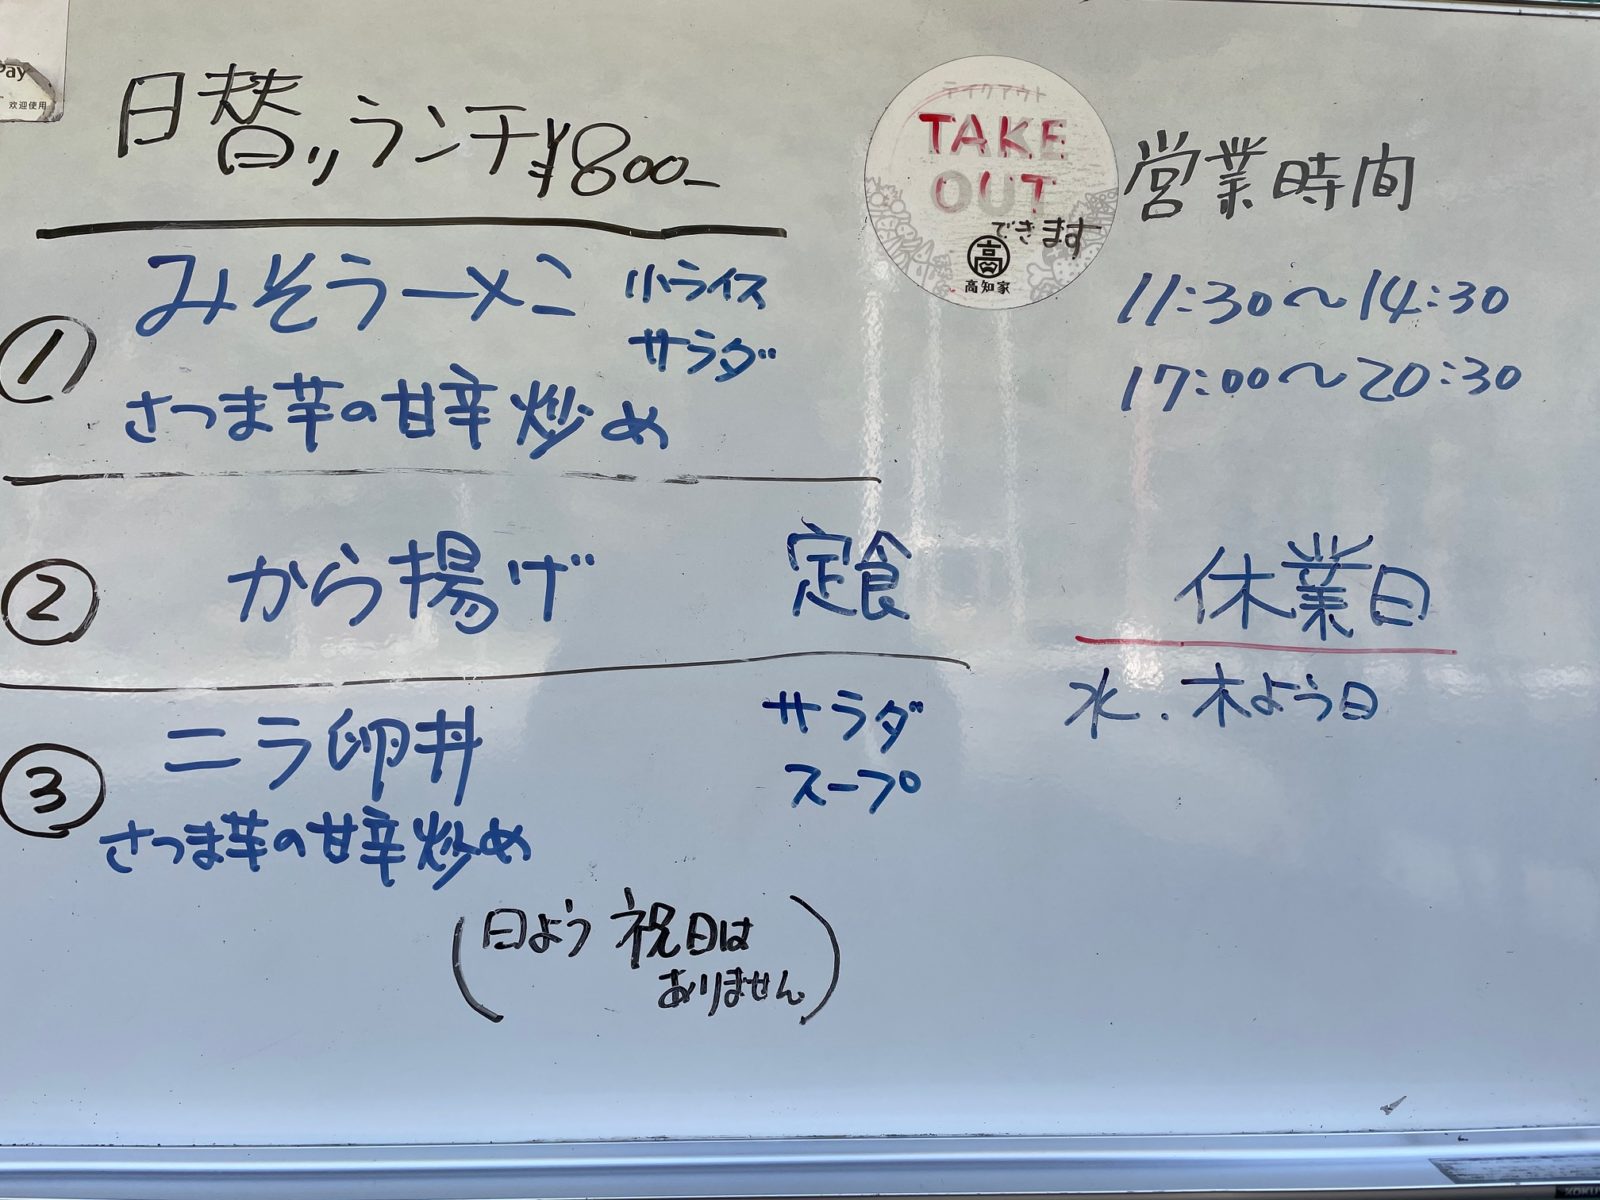 Pay
欢迎使用
日替りランチ¥800-
① みそラーメン 小ライス
サラダ
さつま芋の甘辛炒め
② から揚げ 定食
③ ニラ卵丼 サラダ
スープ
さつま芋の甘辛炒め
(日よう 祝日は
ありません)
テイクアウト
TAKE
OUT
できます
高
高知家
営業時間
11:30〜14:30
17:00〜20:30
休業日
水.木よう日